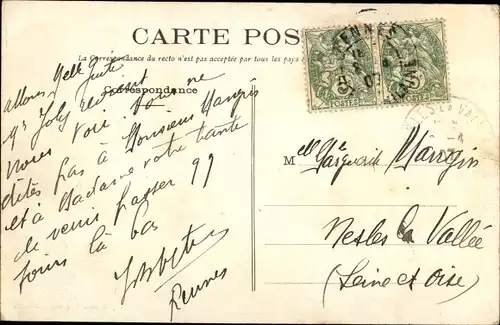 CARTE POS
La Correspondance du recto n'est pas acceptée par tous les pays
Correspondance
Allons Melle
Joly revient
nous voir
dites pas à Monsieur Mangis
et à Madame votre tante
de venir passer 99
jours là bas
Rennes
RENNES
5 5
POSTES POSTES
NESLES LA VAL
Melle Mangin
Nesles la Vallée
(Seine et Oise)